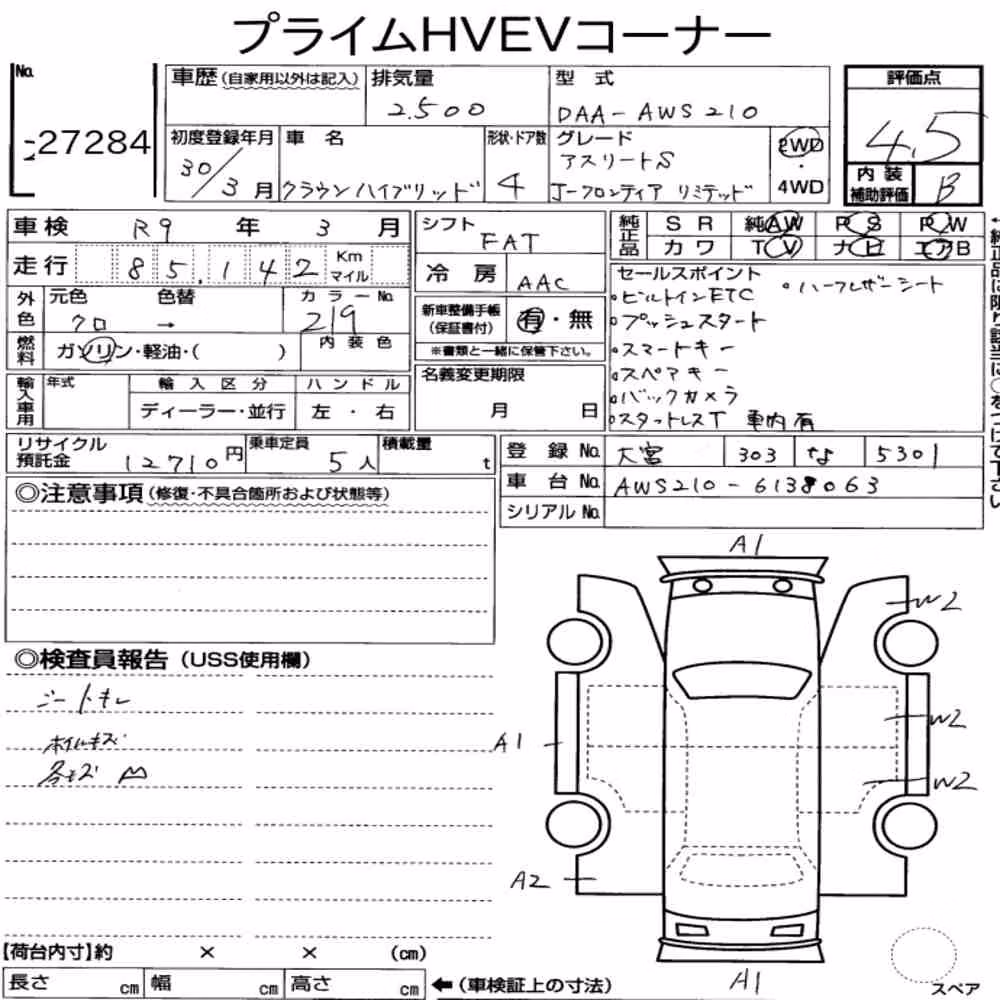 プライムHVEVコーナー
No.
27284
車歴(自家用以外は記入)
排気量
2.500
型式
DAA-AWS210
評価点
4.5
初度登録年月
30/3月
車名
クラウンハイブリッド
形状・ドア数
4
グレード
アスリートS
J-フロンティア リミテッド
2WD
・
4WD
内装
補助評価
B
車検 R9年 3月
走行 85,142 Km
マイル
シフト
FAT
冷房 AAC
純正品
SR 純AW PS PW
カワ TV ナビ エアB
←純正品に限り該当に○をつけて下さい
外色
元色 色替 カラーNo.
クロ → 219
燃料
ガソリン・軽油・( )
内装色
新車整備手帳
(保証書付)
有・無
※書類と一緒に保管下さい。
名義変更期限
月 日
セールスポイント
・ビルトインETC ・ハーフレザーシート
・プッシュスタート
・スマートキー
・スペアキー
・バックカメラ
・スタットレスT 車内有
輸入車用
年式
輸入区分
ハンドル
ディーラー・並行
左・右
リサイクル
預託金
12710円
乗車定員
5人
積載量
t
登録No. 大宮 303 な 5301
車台No. AWS210-6138063
シリアルNo.
◎注意事項(修復・不具合箇所および状態等)
◎検査員報告(USS使用欄)
シートキレ
ホイルキズ
各キズ
A1
W2
W2
A1
W2
A2
A1
スペア
【荷台内寸】約 × × (cm)
長さ cm 幅 cm 高さ cm ←(車検証上の寸法)